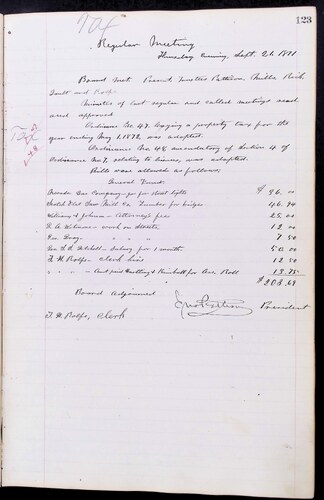 123
Tax
Regular Meeting
Thursday Evening, Sept. 21, 1891
Board met. Present Trustees Pattison, Rich
Gault and Rolfe.
Minutes of last regular and called meetings read
and approved
Ordinance No. 47. Levying a property tax for the
year ending May 1, 1892, was adopted.
Ordinance No. 48 amendatory of Section 4 of
Ordinance No. 7, relating to license, was adopted.
Bills were allowed as follows:
General Fund:
Gas Company - for street lights $96.00
Mill Co Lumber for bridges 46.94
Williams & Johnson - Attorneys fees 25.00
Williams - work on streets 12.00
Geo Gray " " " 7.50
Geo. Mitchell - Salary for 1 month 50.00
F. H. Rolfe - clerk hire 12.50
" " " - Cash paid for Ass. Roll 13.75
Board Adjourned
President
F. H. Rolfe, clerk